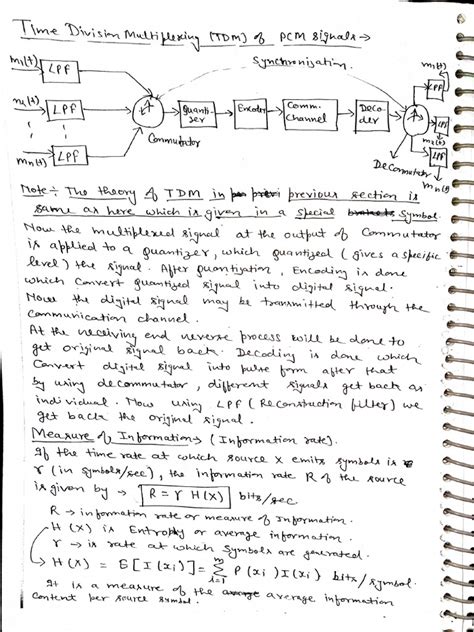 Time Division Multiplexing (TDM) of PCM signals →
Synchronisation
m1(t) LPF
m2(t) LPF
mn(t) LPF
Commutator
Quanti-
zer
Encoder
Comm.
Channel
Deco-
der
Decomutator
m1(t)
LPF
LPF
m2(t)
LPF
mn(t)
Note ÷ The theory of TDM in previous section is
same as here which is given in a special symbol.
Now the multiplexed signal at the output of Commutator
is applied to a quantizer, which quantized (gives a specific
level) the signal. After quantization, Encoding is done
which convert quantized signal into digital signal.
Now the digital signal may be transmitted through the
communication channel.
At the receiving end reverse process will be done to
get original signal back. Decoding is done which
convert digital signal into pulse form after that
by using decommutator, different signals get back as
individual. Now using LPF (Reconstruction filter) we
get back the original signal.
Measure of Information → (Information rate).
If the time rate at which source X emits symbols is
r (in symbols/sec), the information rate R of the source
is given by → R = r H(X) bits/sec
R → information rate or measure of Information.
H(X) is Entropy or average information.
r → is rate at which symbols are generated.
→ H(X) = E[I(xi)] = m Σ i=1 P(xi) I(xi) bits/symbol.
It is a measure of the average information
content per source symbol.